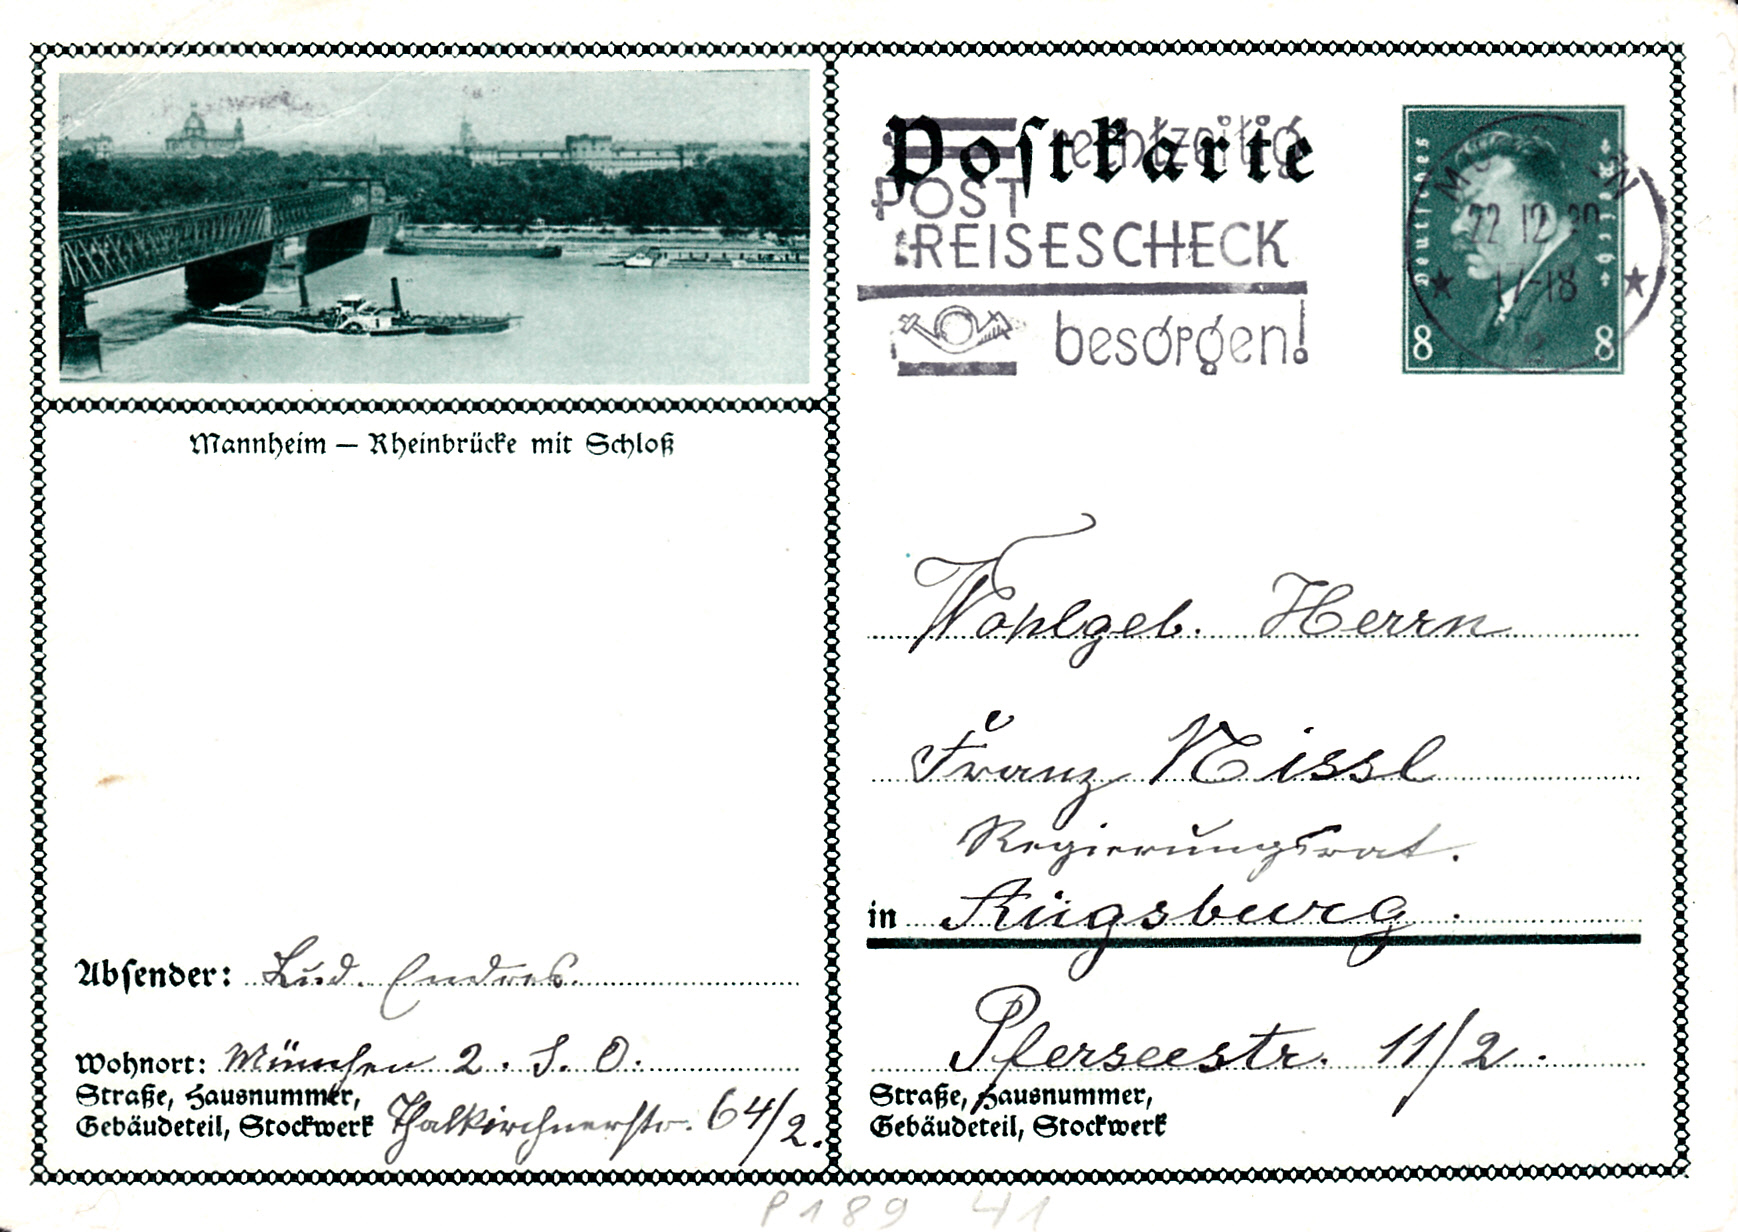 Mannheim — Rheinbrücke mit Schloß
Absender: Lud. Endres.
Wohnort: München 2. S. O.
Straße, Hausnummer,
Gebäudeteil, Stockwerk Thalkirchnerstr. 64/2.
Postkarte
rechtzeitig
POST
REISESCHECK
besorgen!
Deutsches
Reich
8 8
22 12 30
17-18
Wohlgeb. Herrn
Franz Nissl
Regierungsrat.
in Augsburg.
Pferseestr. 11/2.
Straße, Hausnummer,
Gebäudeteil, Stockwerk
P 189 41